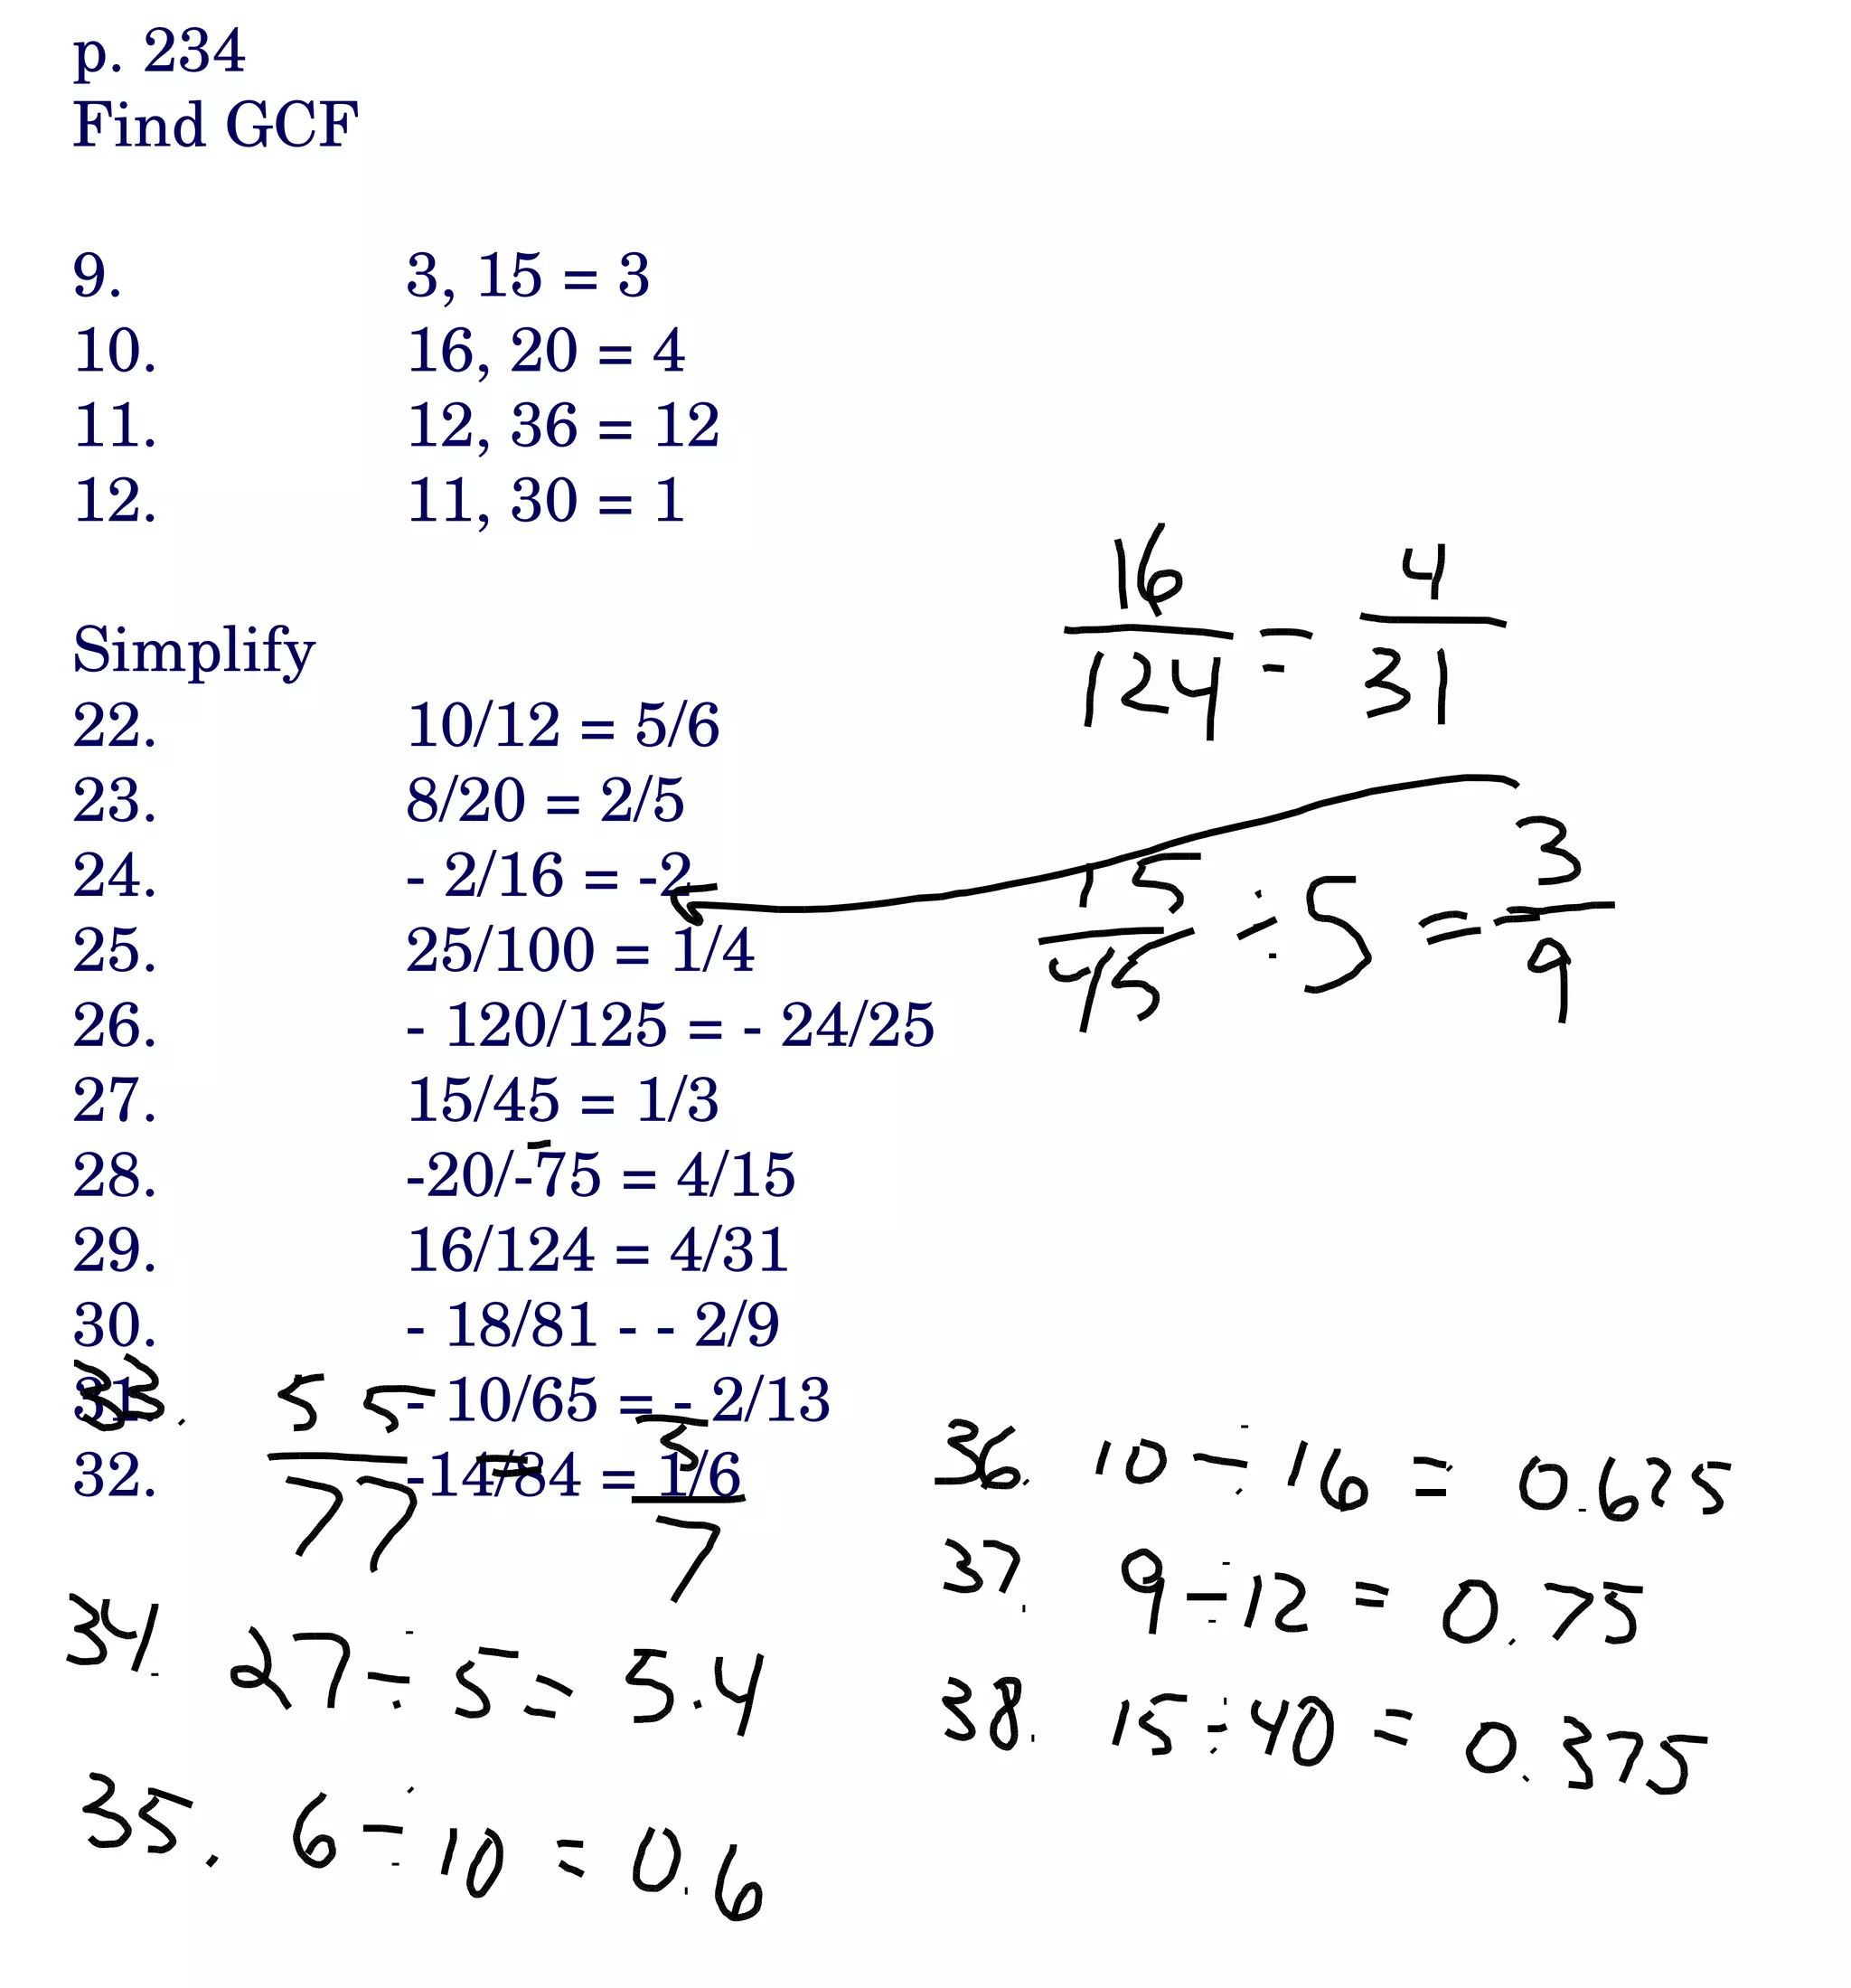 p. 234
Find GCF
9. 3, 15 = 3
10. 16, 20 = 4
11. 12, 36 = 12
12. 11, 30 = 1
16/124 = 4/31
Simplify
22. 10/12 = 5/6
23. 8/20 = 2/5
24. - 2/16 = -2
15/45 ÷ 5 = 3/9
25. 25/100 = 1/4
26. - 120/125 = - 24/25
27. 15/45 = 1/3
28. -20/-75 = 4/15
29. 16/124 = 4/31
30. - 18/81 - - 2/9
31. - 10/65 = - 2/13
32. -14/84 = 1/6
33. 55/77 = 5/7
34. 27 ÷ 5 = 5.4
35. 6 ÷ 10 = 0.6
36. 10 ÷ 16 = 0.625
37. 9 ÷ 12 = 0.75
38. 15 ÷ 40 = 0.375